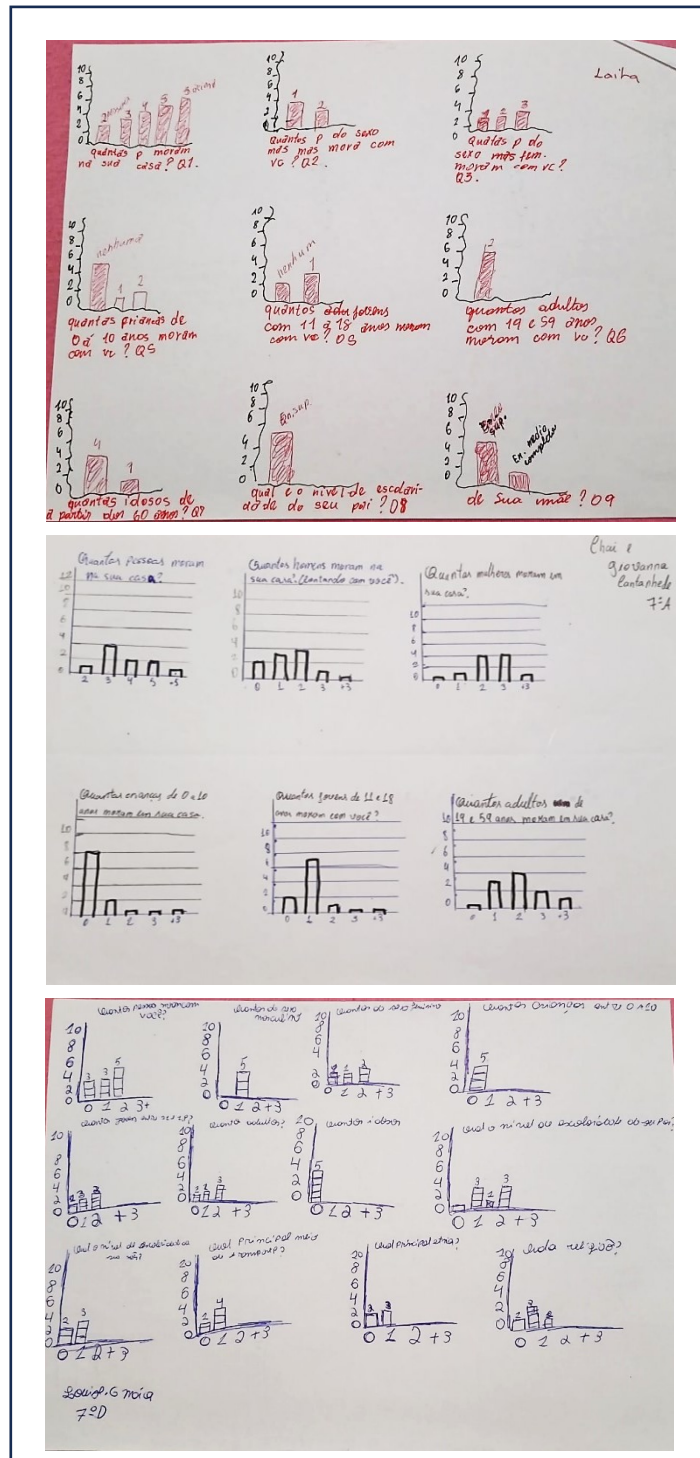 Laira
10
8
6
4
2
0
2 3 4 5 5
quantas p moram
na sua casa? Q1.
10
8
6
4
2
0
1 2
quantos p do sexo
mas mas mora com
vc? Q2.
10
8
6
4
2
0
1 2 3
quatas p do
sexo mas fem.
moram com vc?
Q3.
10
8
6
4
2
0
nenhuma
1 2
quantas crianças de
0 á 10 anos moram
com vc? Q5
10
8
6
4
2
0
nenhum
1
quantos jovens
com 11 a 18 anos moram
com vc?
10
8
6
4
2
0
2
quantos adultos
com 19 e 59 anos
moram com vc? Q6
10
8
6
4
2
0
4 1
quantas idosos de
a partir dos 60 anos? Q7
10
8
6
4
2
0
En.sup
qual e o nivel de escolari-
dade do seu pai?
10
8
6
4
2
0
sup.
En. medio
completo
de sua mãe? 09
Chai e
Giovanna
Cantanhede
7ºA
Quantas pessoas moram
na sua casa?
12
10
8
6
4
2
0
2 3 4 5 +5
Quantos homens moram na
sua casa? (contando com você).
10
8
6
4
2
0
0 1 2 3 +3
Quantas mulheres moram em
sua casa?
10
8
6
4
2
0
0 1 2 3 +3
Quantas crianças de 0 a 10
anos moram em sua casa.
10
8
6
4
2
0
0 1 2 3 +3
Quantos jovens de 11 e 18
anos moram com você?
10
8
6
4
2
0
0 1 2 3 +3
Quantos adultos de
19 e 59 anos moram em sua casa?
10
8
6
4
2
0
0 1 2 3 +3
quantas moram com
você?
10
8
6
4
2
0
3 3 5
0 1 2 3+
quantos do sexo
masculino
10
8
6
4
2
0
5
0 1 2 +3
quantos do sexo feminino
10
8
6
4
2
0
1 1 2
0 1 2 +3
quantos crianças ente 0 a 10
10
8
6
4
2
0
5
0 1 2 +3
10
8
6
4
2
0
0 1 2 +3
quantos adultos?
10
8
6
4
2
0
0 1 2 +3
quantos idosos
10
8
6
4
2
0
5
0 1 2 +3
qual o nivel de escolaridade do seu pai?
10
8
6
4
2
0
3 1 3
0 1 2 +3
qual o nivel de escolaridade
10
8
6
4
2
0
2 3
0 1 2 +3
qual principal meio
de
10
8
6
4
2
0
2 4
0 1 2 +3
qual principal
10
8
6
4
2
0
3 3
0 1 2 +3
10
8
6
4
2
0
0 1 2 +3
7ºD